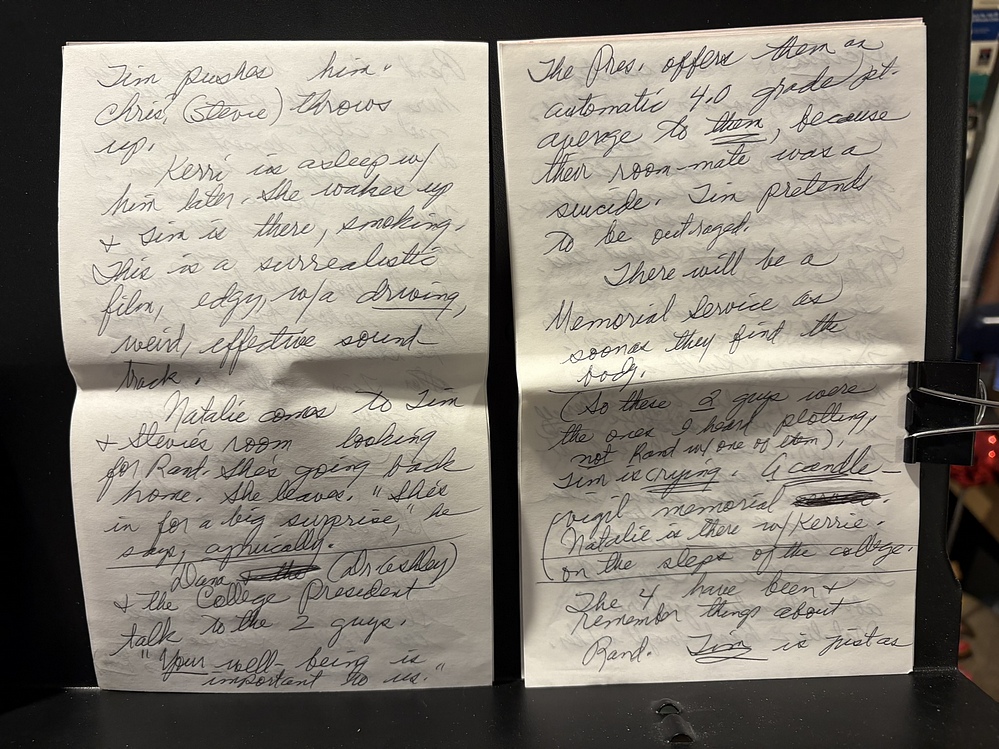 Tim pushes him.
Chris, (Stevie) throws
up.
Kerri is asleep w/
him later. She wakes up
& Tim is there, smoking.
This is a surrealistic
film, edgy, w/a driving,
weird, effective sound-
track.
Natalie comes to Tim
& Stevie's room looking
for Rand. She's going back
home. She leaves. "She's
in for a big surprise," he
says, cynically.
Dana (Dr. Ashley)
& the College President
talk to the 2 guys.
"Your well-being is
important to us."
The Pres. offers them an
automatic 4.0 grade pt.
average to them, because
their room-mate was a
suicide. Tim pretends
to be outraged.
There will be a
Memorial Service as
soon as they find the
body.
(So these 2 guys were
the ones I heard plotting,
not Rand w/ one of them).
Tim is crying. A candle-
vigil memorial.
(Natalie is there w/ Kerrie.
on the steps of the college.
The 4 have been &
remember things about
Rand. Tim is just as